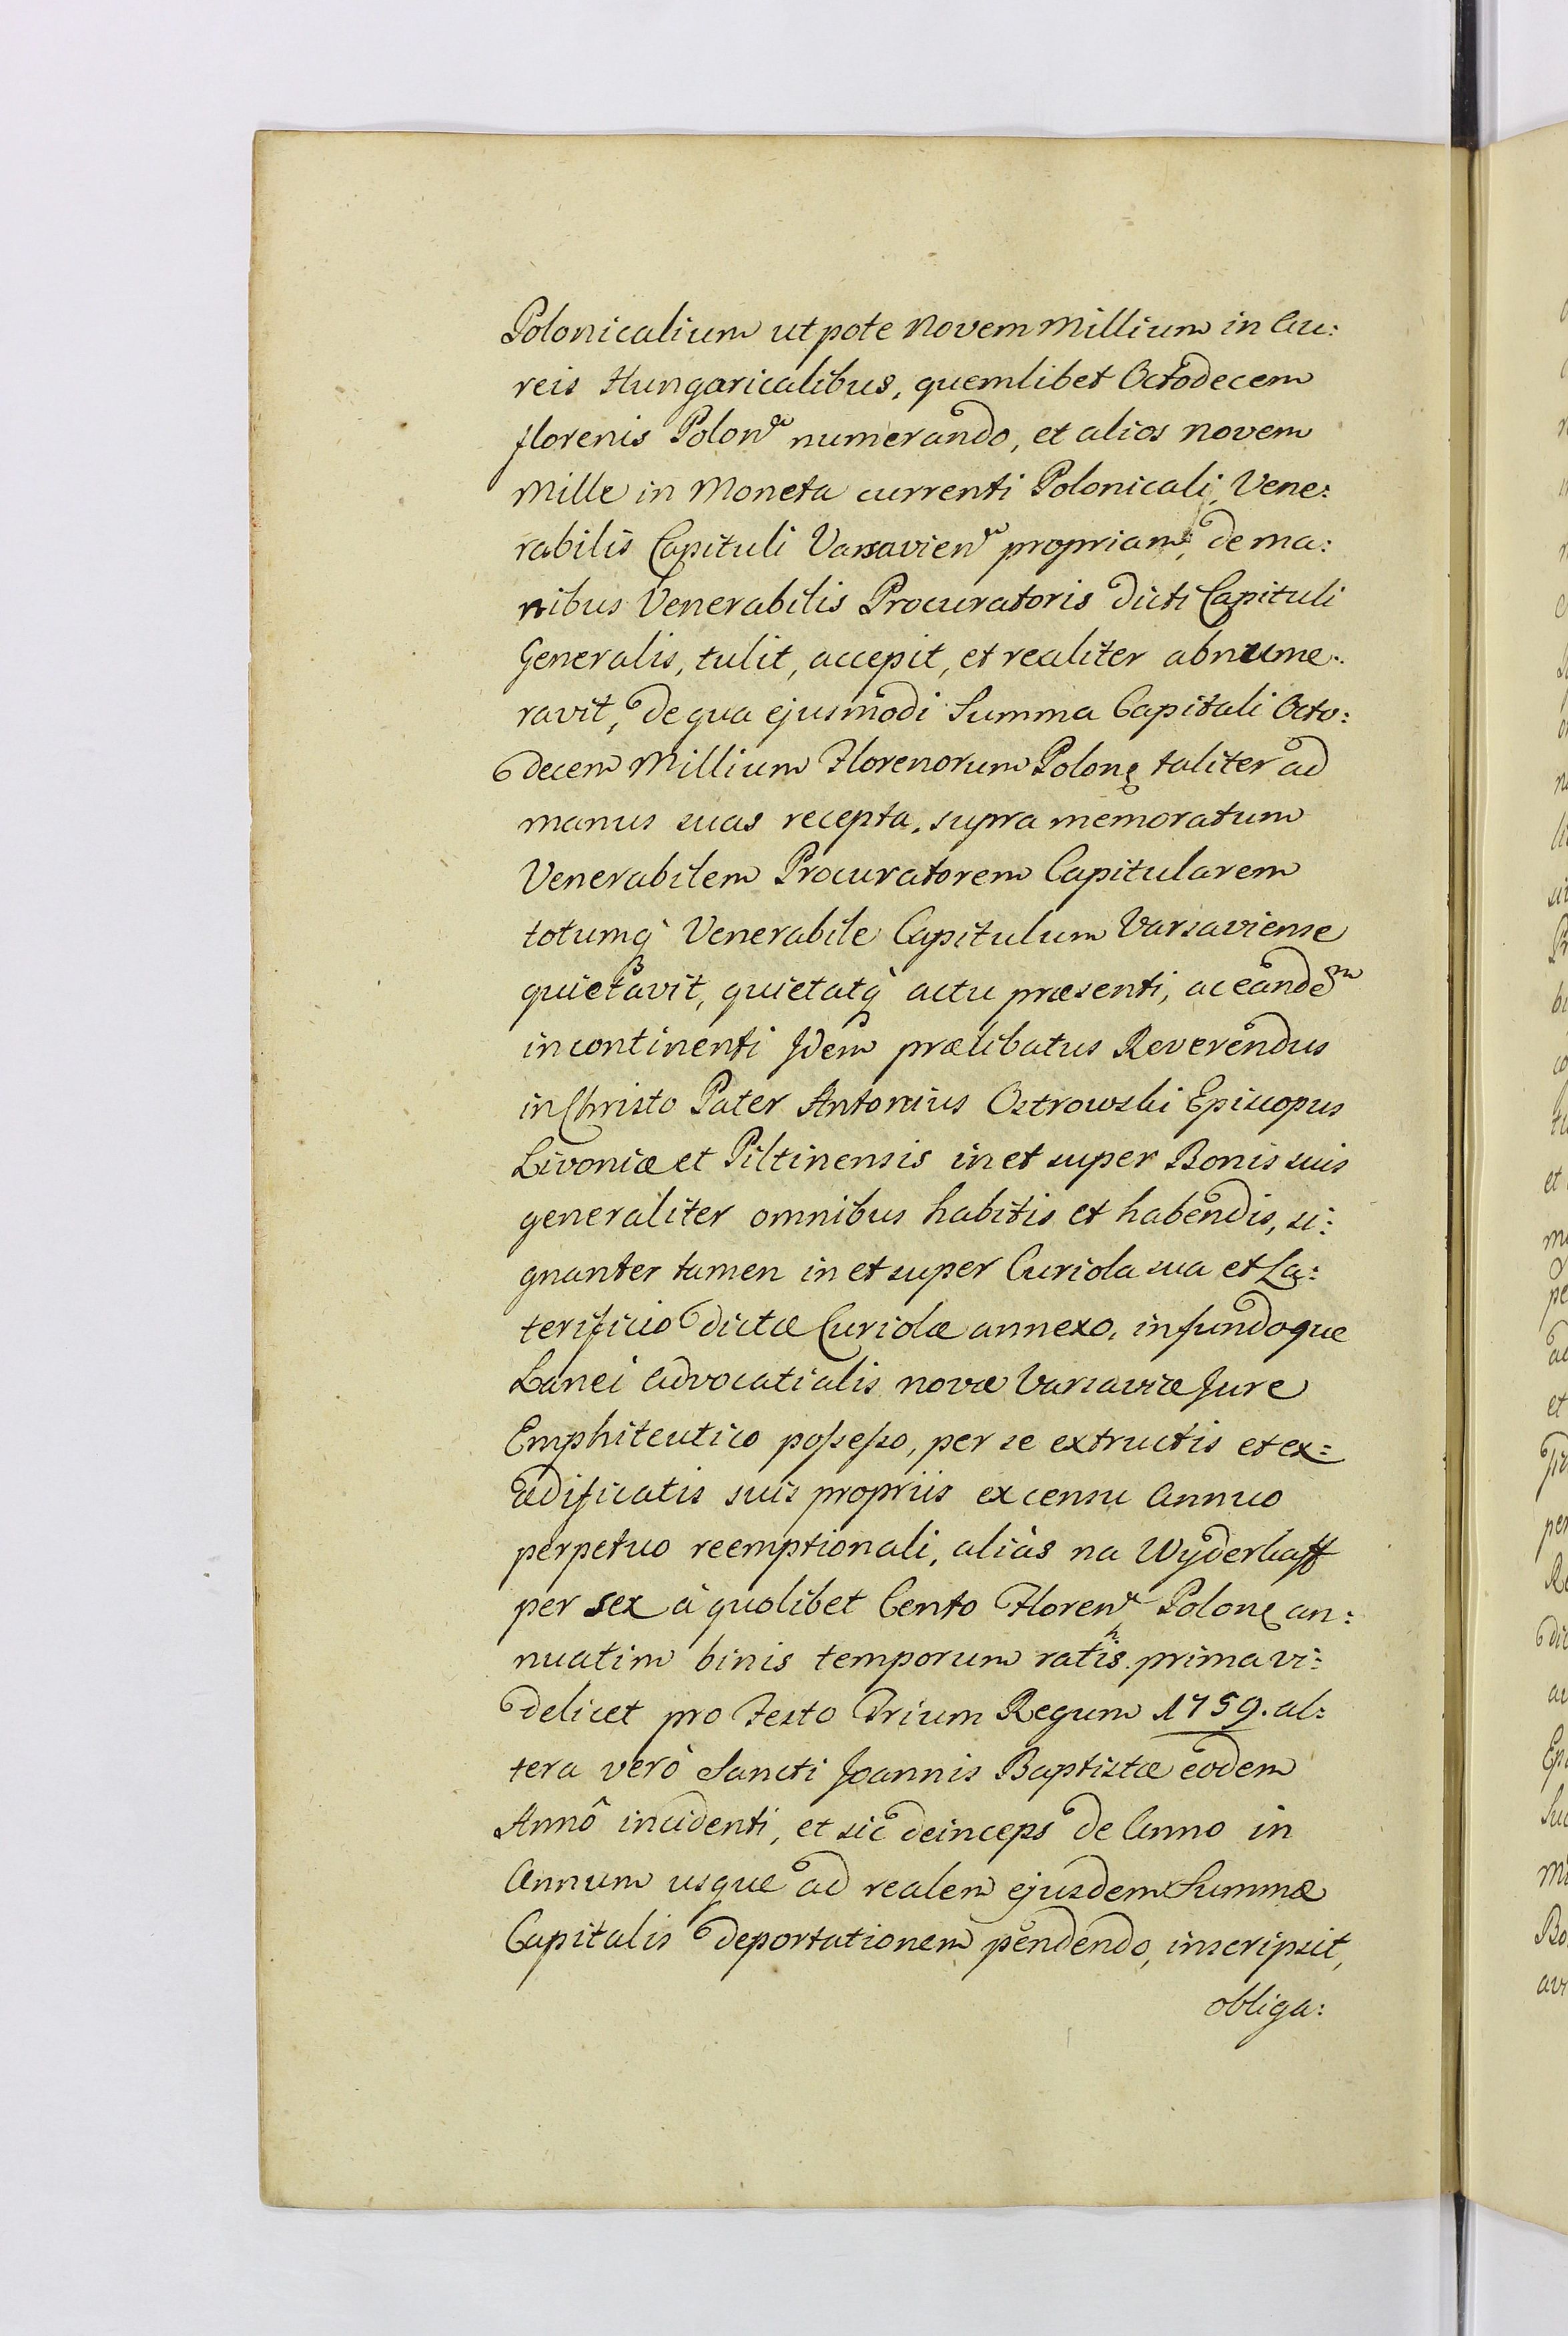 Polonicalium utpote Novem Millium in Au:
reis Hungaricalibus, quemlibet Octodecem
florenis Polon. numerando, et alios Novem
Mille in Moneta currenti Polonicali, Vene:
rabilis Capituli Varsavien. propriam, de ma:
nibus Venerabilis Procuratoris dicti Capituli
Generalis, tulit, accepit, et realiter abnume:
ravit, de qua ejusmodi Summa Capitali Octo:
decem Millium Florenorum Polon. taliter ad
manus suas recepta, supra memoratum
Venerabilem Procuratorem Capitularem
totumq̀ Venerabile Capitulum Varsaviense
quietavit, quietatq̀ actu præsenti, ac eandem
in continenti Idem prælibatus Reverendus
in Christo Pater Antonius Ostrowski Episcopus
Livoniæ et Piltinensis in et super Bonis suis
generaliter omnibus habitis et habendis, si:
gnanter tamen in et super Curiola sua et La:
terificio dictæ Curiolæ annexo, in fundoque
Lanei Advocatialis novæ Varsaviæ Jure
Emphiteutico possesso, per se extructis et ex=
ædificatis suis propriis ex censu Annuo
perpetuo reemptionali, aliàs na Wyderkaff
per sex à quolibet Cento Floren. Polon. an:
nuatim binis temporum ratis prima vi:
delicet pro Festo Trium Regum 1759. al:
tera verò Sancti Joannis Baptistæ eodem
Annô incidenti, et sic deinceps de Anno in
Annum usque ad realem ejusdem Summæ
Capitalis deportationem pendendo, inscripsit,
obliga: